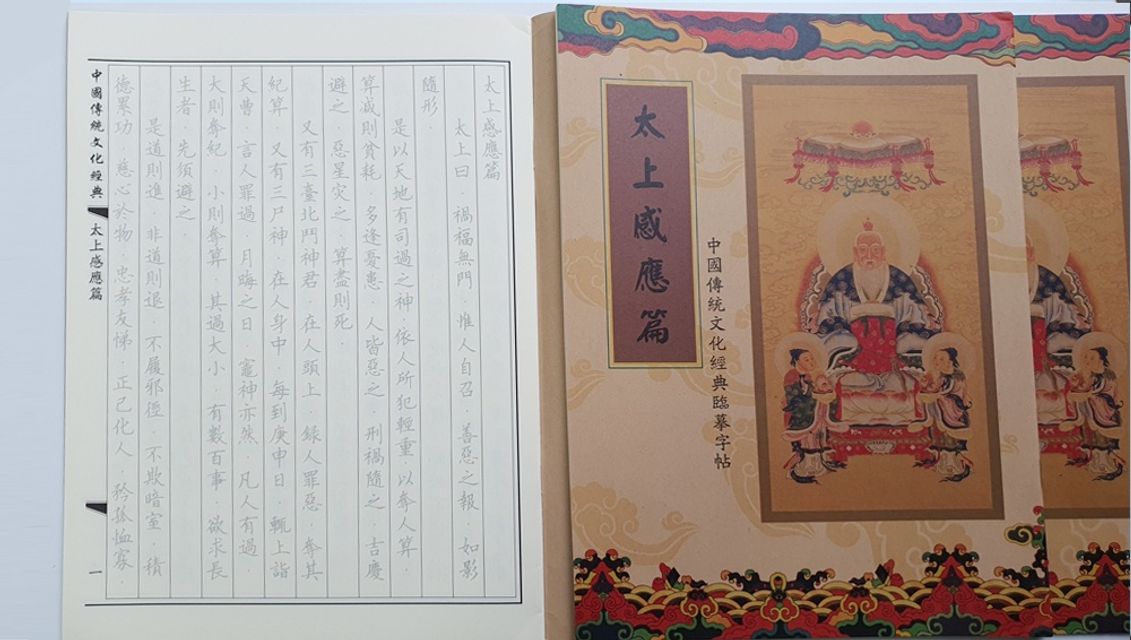 太上感應篇
太上曰．禍福無門．惟人自召．善惡之報．如影
隨形．
是以天地有司過之神．依人所犯輕重．以奪人算．
算減則貧耗．多逢憂患．人皆惡之．刑禍隨之．吉慶
避之．惡星災之．算盡則死．
又有三臺北鬥神君．在人頭上．錄人罪惡．奪其
紀算．又有三尸神．在人身中．每到庚申日．輒上詣
天曹．言人罪過．月晦之日．竈神亦然．凡人有過．
大則奪紀．小則奪算．其過大小．有數百事．欲求長
生者．先須避之．
是道則進．非道則退．不履邪徑．不欺暗室．積
德累功．慈心於物．忠孝友悌．正己化人．矜孤恤寡．
中國傳統文化經典
太上感應篇
一
太上感應篇
中國傳統文化經典臨摹字帖